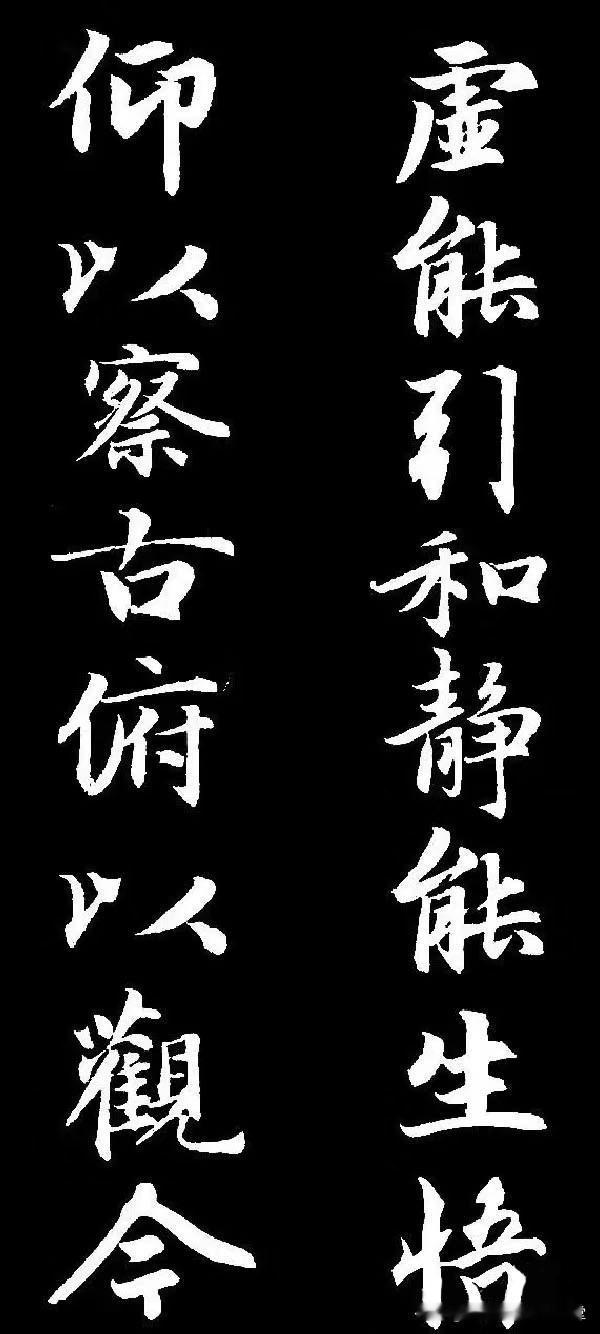 虛能引和靜能生悟
仰以察古俯以觀今